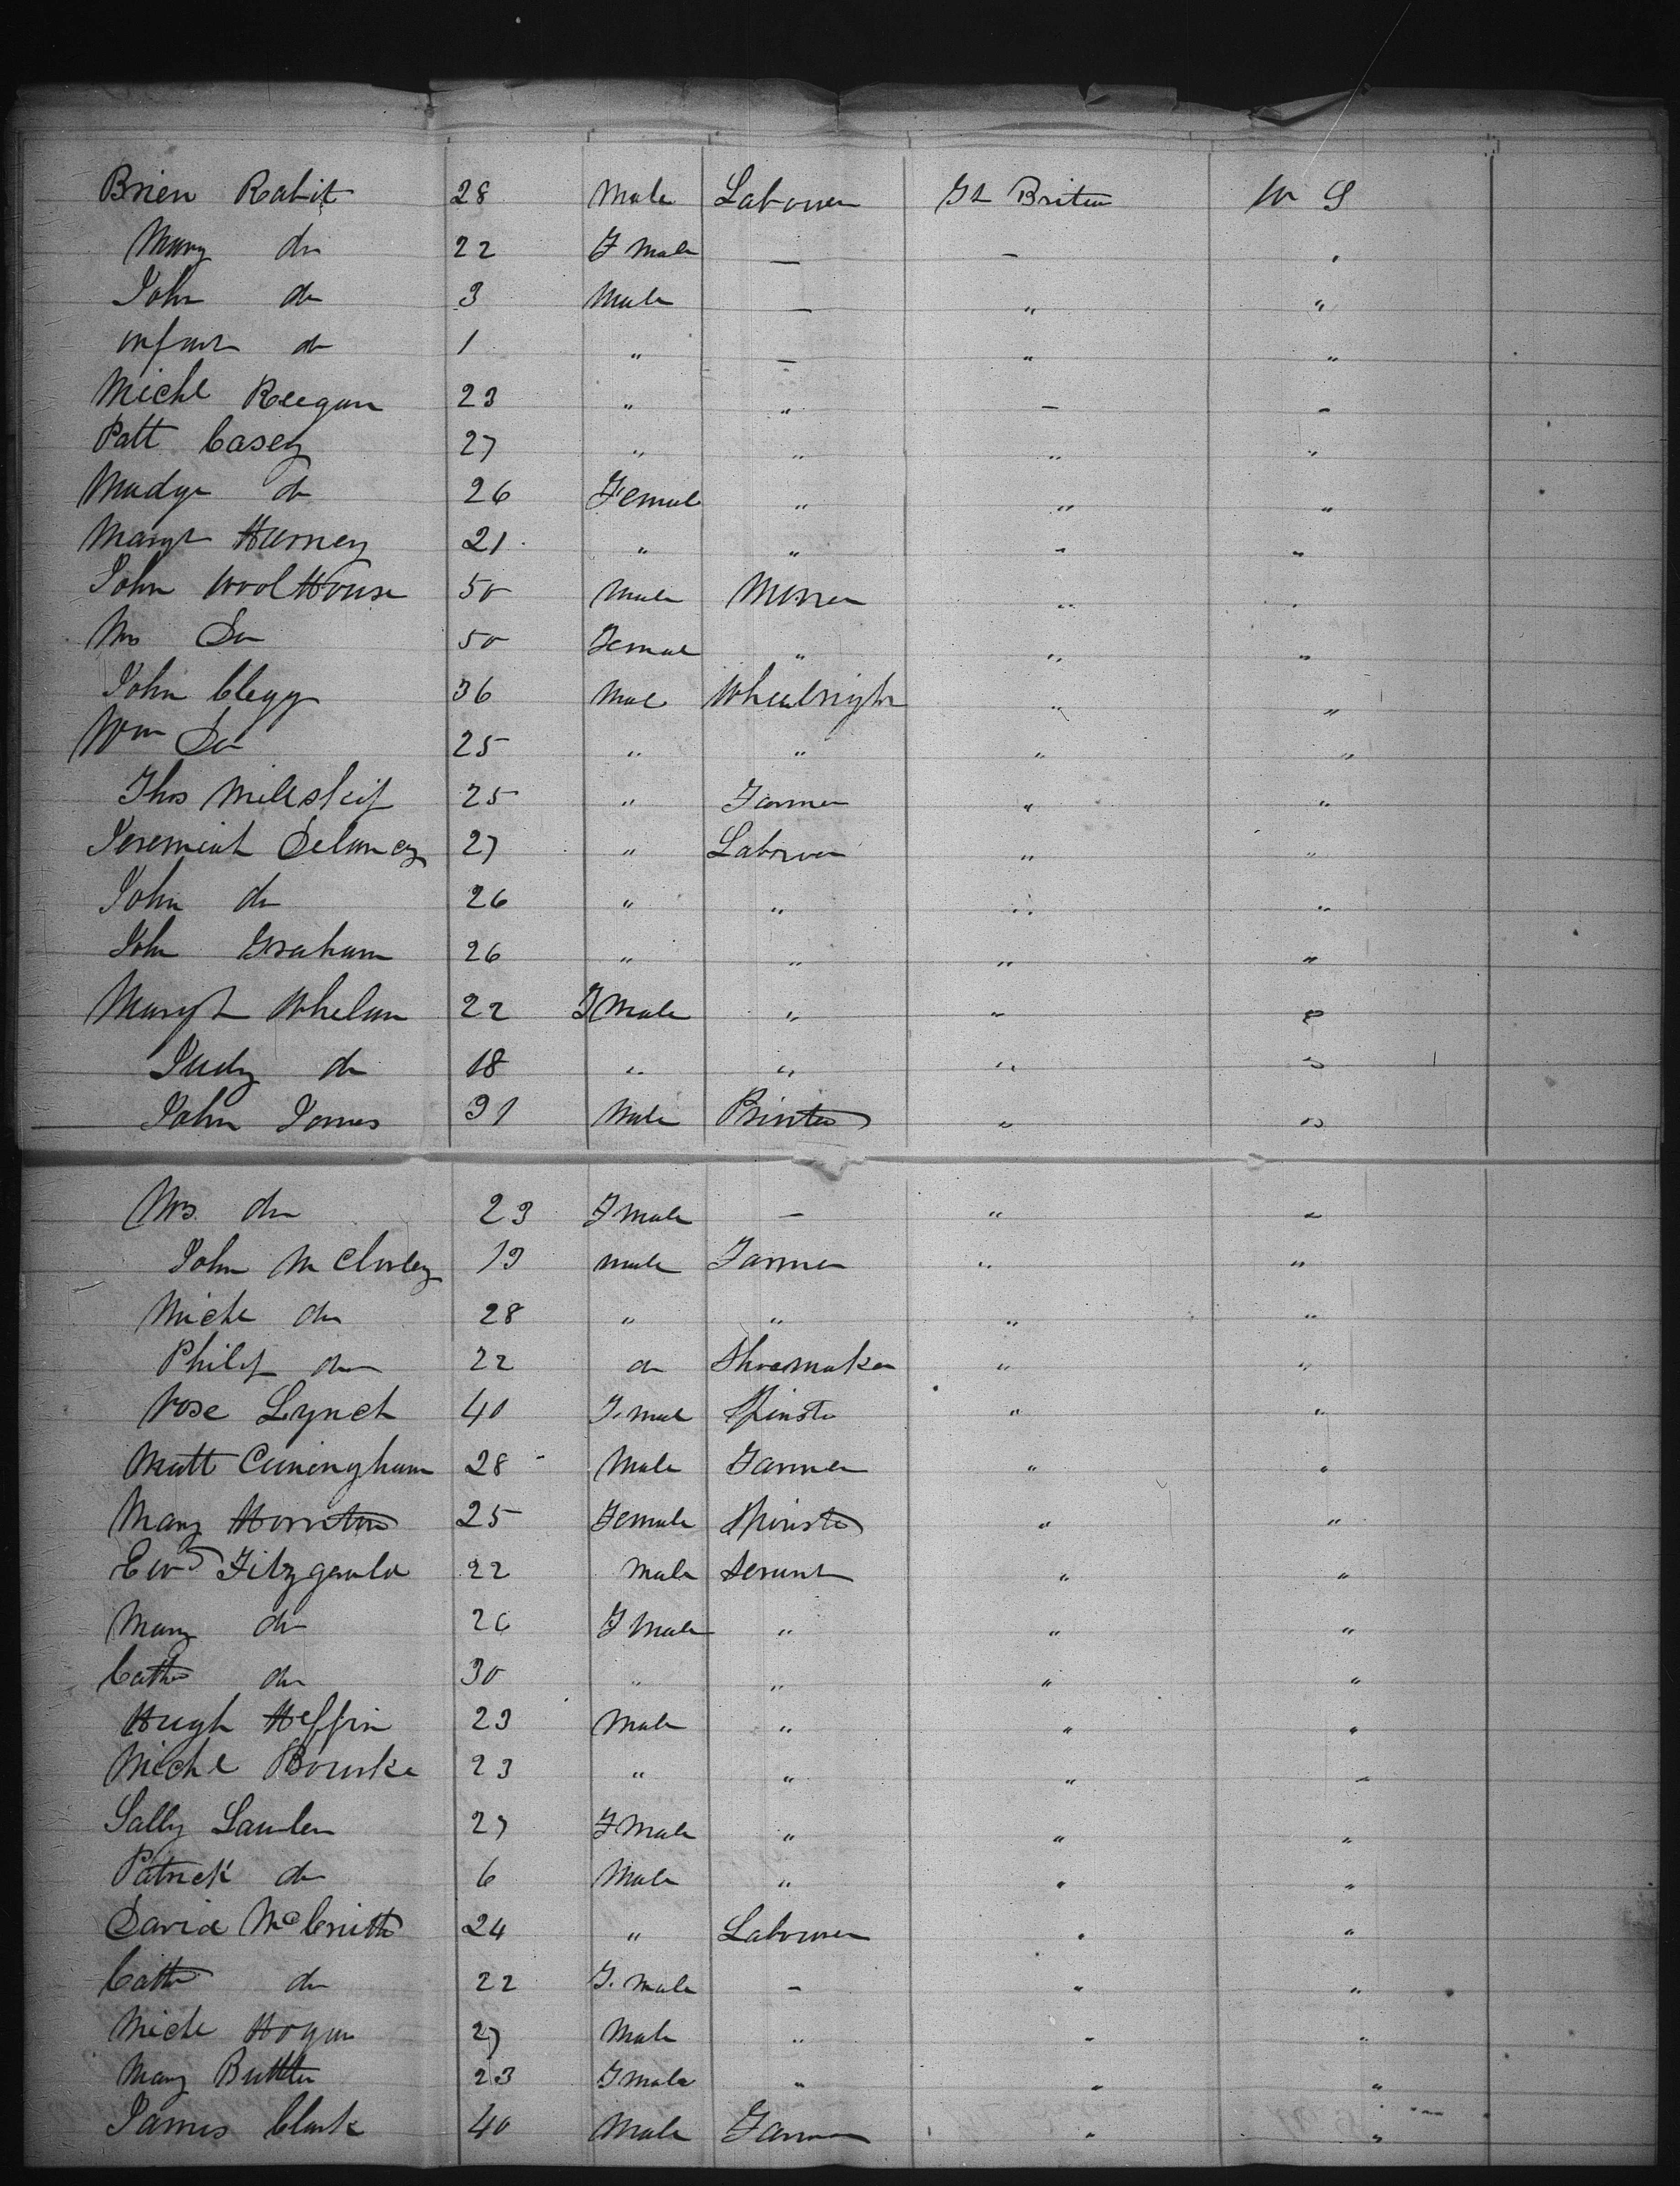 Brien Rabit 28 Male Labourer Gt Briten U S
Mary do 22 F Male — — "
John do 3 Male — " "
infant do 1 " — " "
Michl Reegan 23 " " — -
Patt Casey 27 " " " "
Madge do 26 Female " " "
Margt Harney 21 " " " "
John WoolHouse 50 Male " "
Mrs Do 50 Female " " "
John Clegg 36 Male Wheelright " "
Wm Do 25 " " " "
Thos 25 " Farmer " "
Jeremiah Delaney 27 " Labourer " "
John do 26 " " " "
John Graham 26 " " " "
Margt Whelan 22 F Male " " "
Judy do 18 " " " "
John Jones 31 Male Printer " "
Mrs do 23 F Male — " "
John 19 male Farmer " "
Michl do 28 " " " "
Philip do 22 do Shoemaker " "
Rose Lynch 40 F. male Spinster " "
Matt Cuningham 28 Male Farmer " "
Mary 25 Female Spinster " "
Ewd Fitzgerald 22 Male Servant " "
Mary do 26 F Male " " "
Cathe do 30 " " " "
Hugh Heffrin 23 Male " " "
Michl Bourke 23 " " " "
Sally Lawler 27 F Male " " "
Patrick do 6 Male " " "
David 24 " Labourer " "
Cathe do 22 F. male - " "
Michl Hogan 27 Male " " "
Mary Buttler 23 F male " " "
James Clark 40 Male Farmer " "